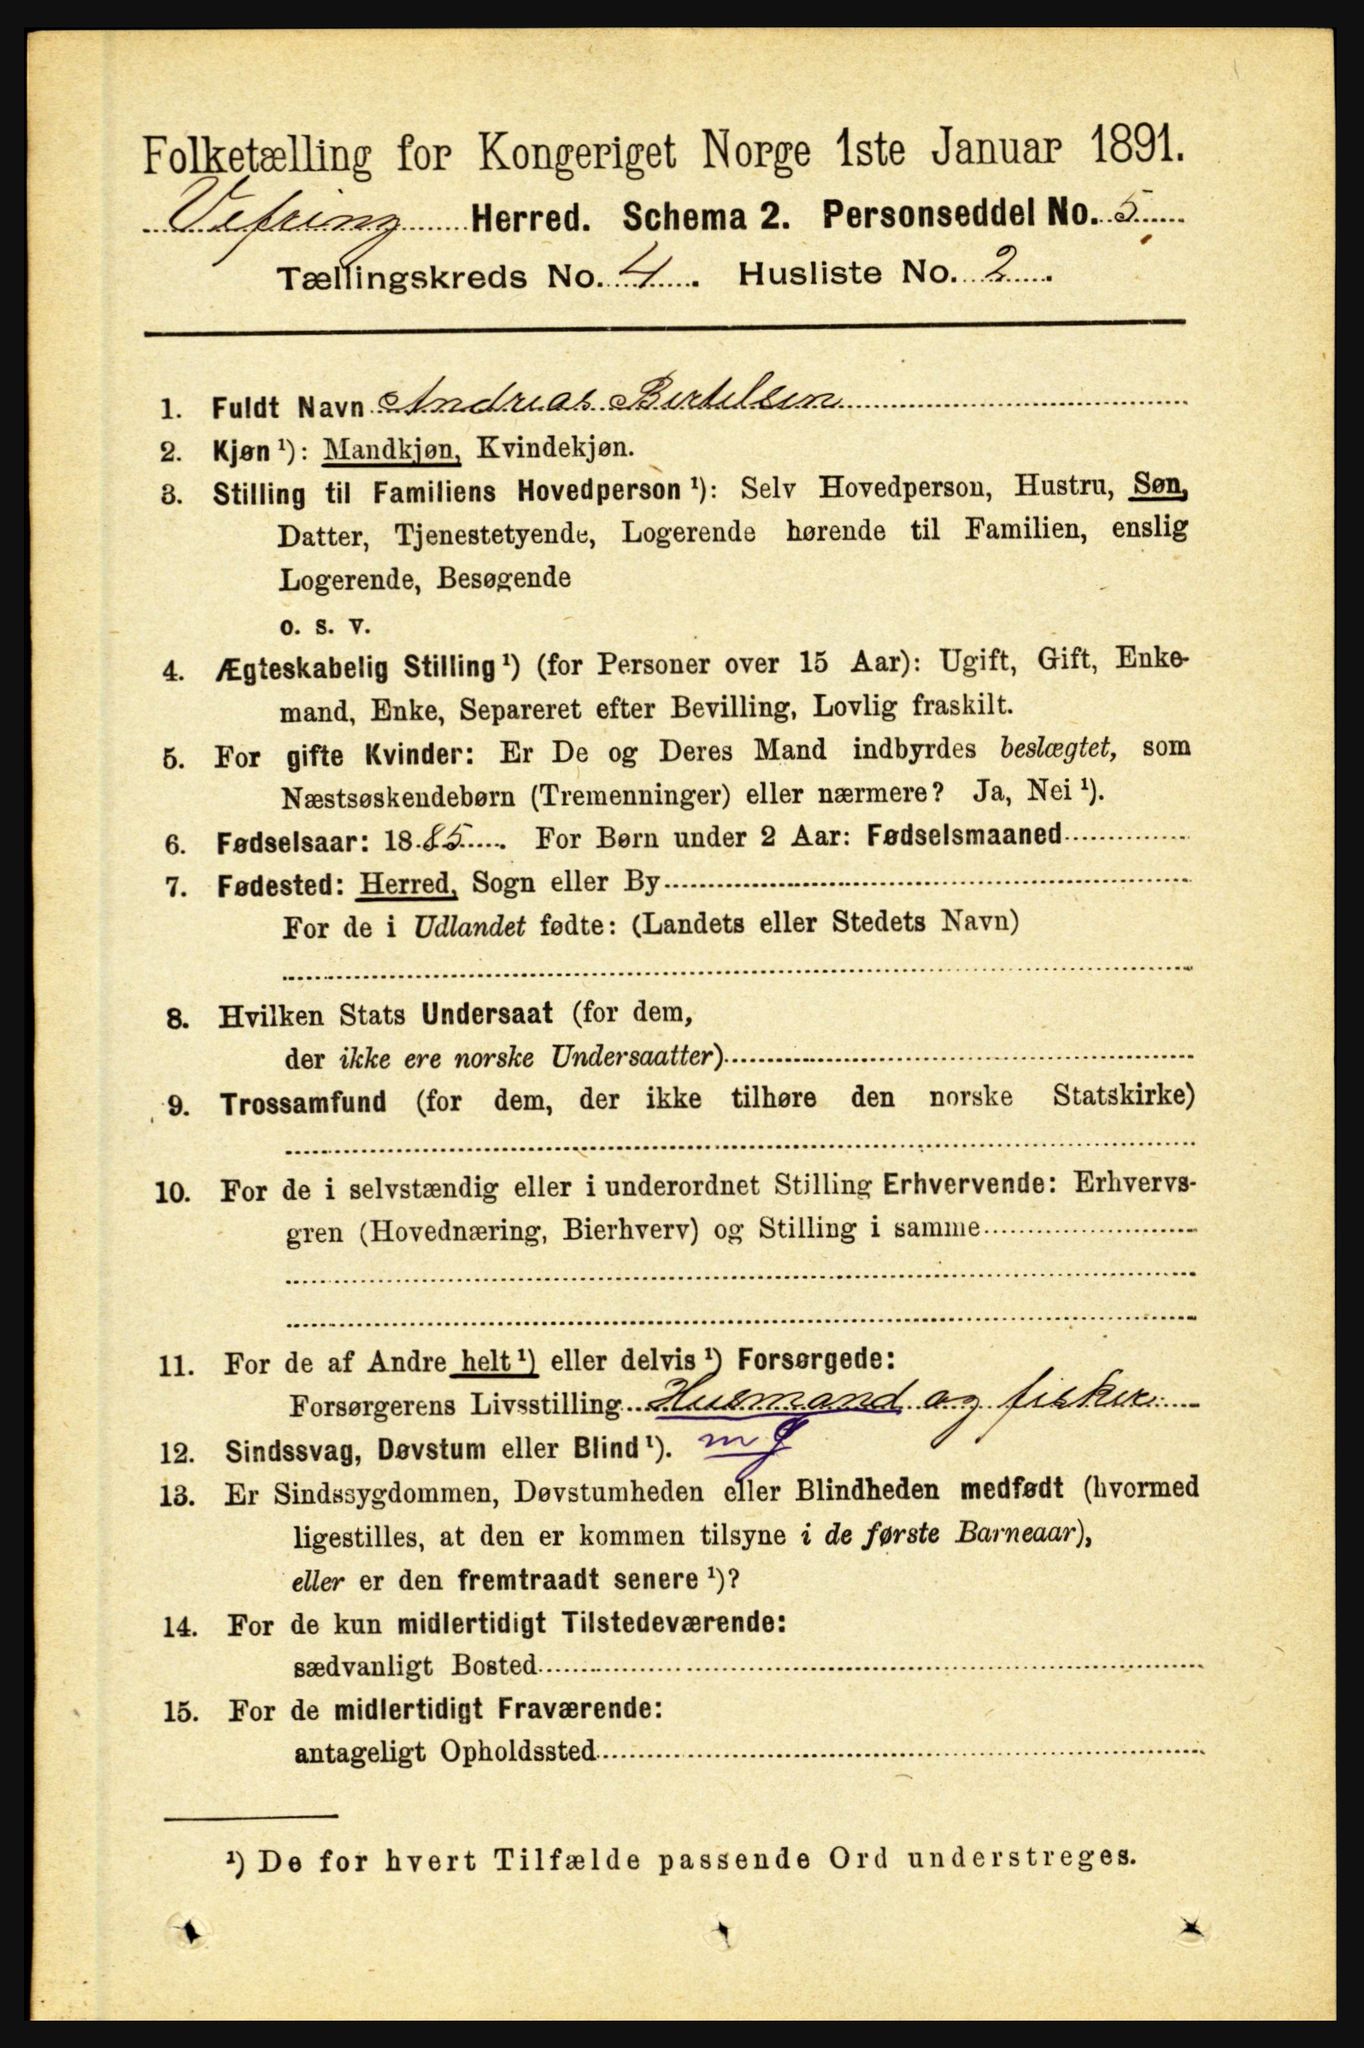 Folketælling for Kongeriget Norge 1ste Januar 1891.
Vefring Herred. Schema 2. Personseddel No. 5
Tællingskreds No. 4. Husliste No. 2.
1. Fuldt Navn Andreas Bertelsen
2. Kjøn ¹): Mandkjøn, Kvindekjøn.
3. Stilling til Familiens Hovedperson ¹): Selv Hovedperson, Hustru, Søn,
Datter, Tjenestetyende, Logerende hørende til Familien, enslig
Logerende, Besøgende
o. s. v.
4. Ægteskabelig Stilling ¹) (for Personer over 15 Aar): Ugift, Gift, Enke-
mand, Enke, Separeret efter Bevilling, Lovlig fraskilt.
5. For gifte Kvinder: Er De og Deres Mand indbyrdes beslægtet, som
Næstsøskendebørn (Tremenninger) eller nærmere? Ja, Nei ¹).
6. Fødselsaar: 1885. For Børn under 2 Aar: Fødselsmaaned
7. Fødested: Herred, Sogn eller By
For de i Udlandet fødte: (Landets eller Stedets Navn)
8. Hvilken Stats Undersaat (for dem,
der ikke ere norske Undersaatter)
9. Trossamfund (for dem, der ikke tilhøre den norske Statskirke)
10. For de i selvstændig eller i underordnet Stilling Erhvervende: Erhvervs-
gren (Hovednæring, Bierhverv) og Stilling i samme
11. For de af Andre helt ¹) eller delvis ¹) Forsørgede:
Forsørgerens Livsstilling Husmand og fisker
12. Sindssvag, Døvstum eller Blind ¹).
13. Er Sindssygdommen, Døvstumheden eller Blindheden medfødt (hvormed
ligestilles, at den er kommen tilsyne i de første Barneaar),
eller er den fremtraadt senere ¹)?
14. For de kun midlertidigt Tilstedeværende:
sædvanligt Bosted
15. For de midlertidigt Fraværende:
antageligt Opholdssted
¹) De for hvert Tilfælde passende Ord understreges.